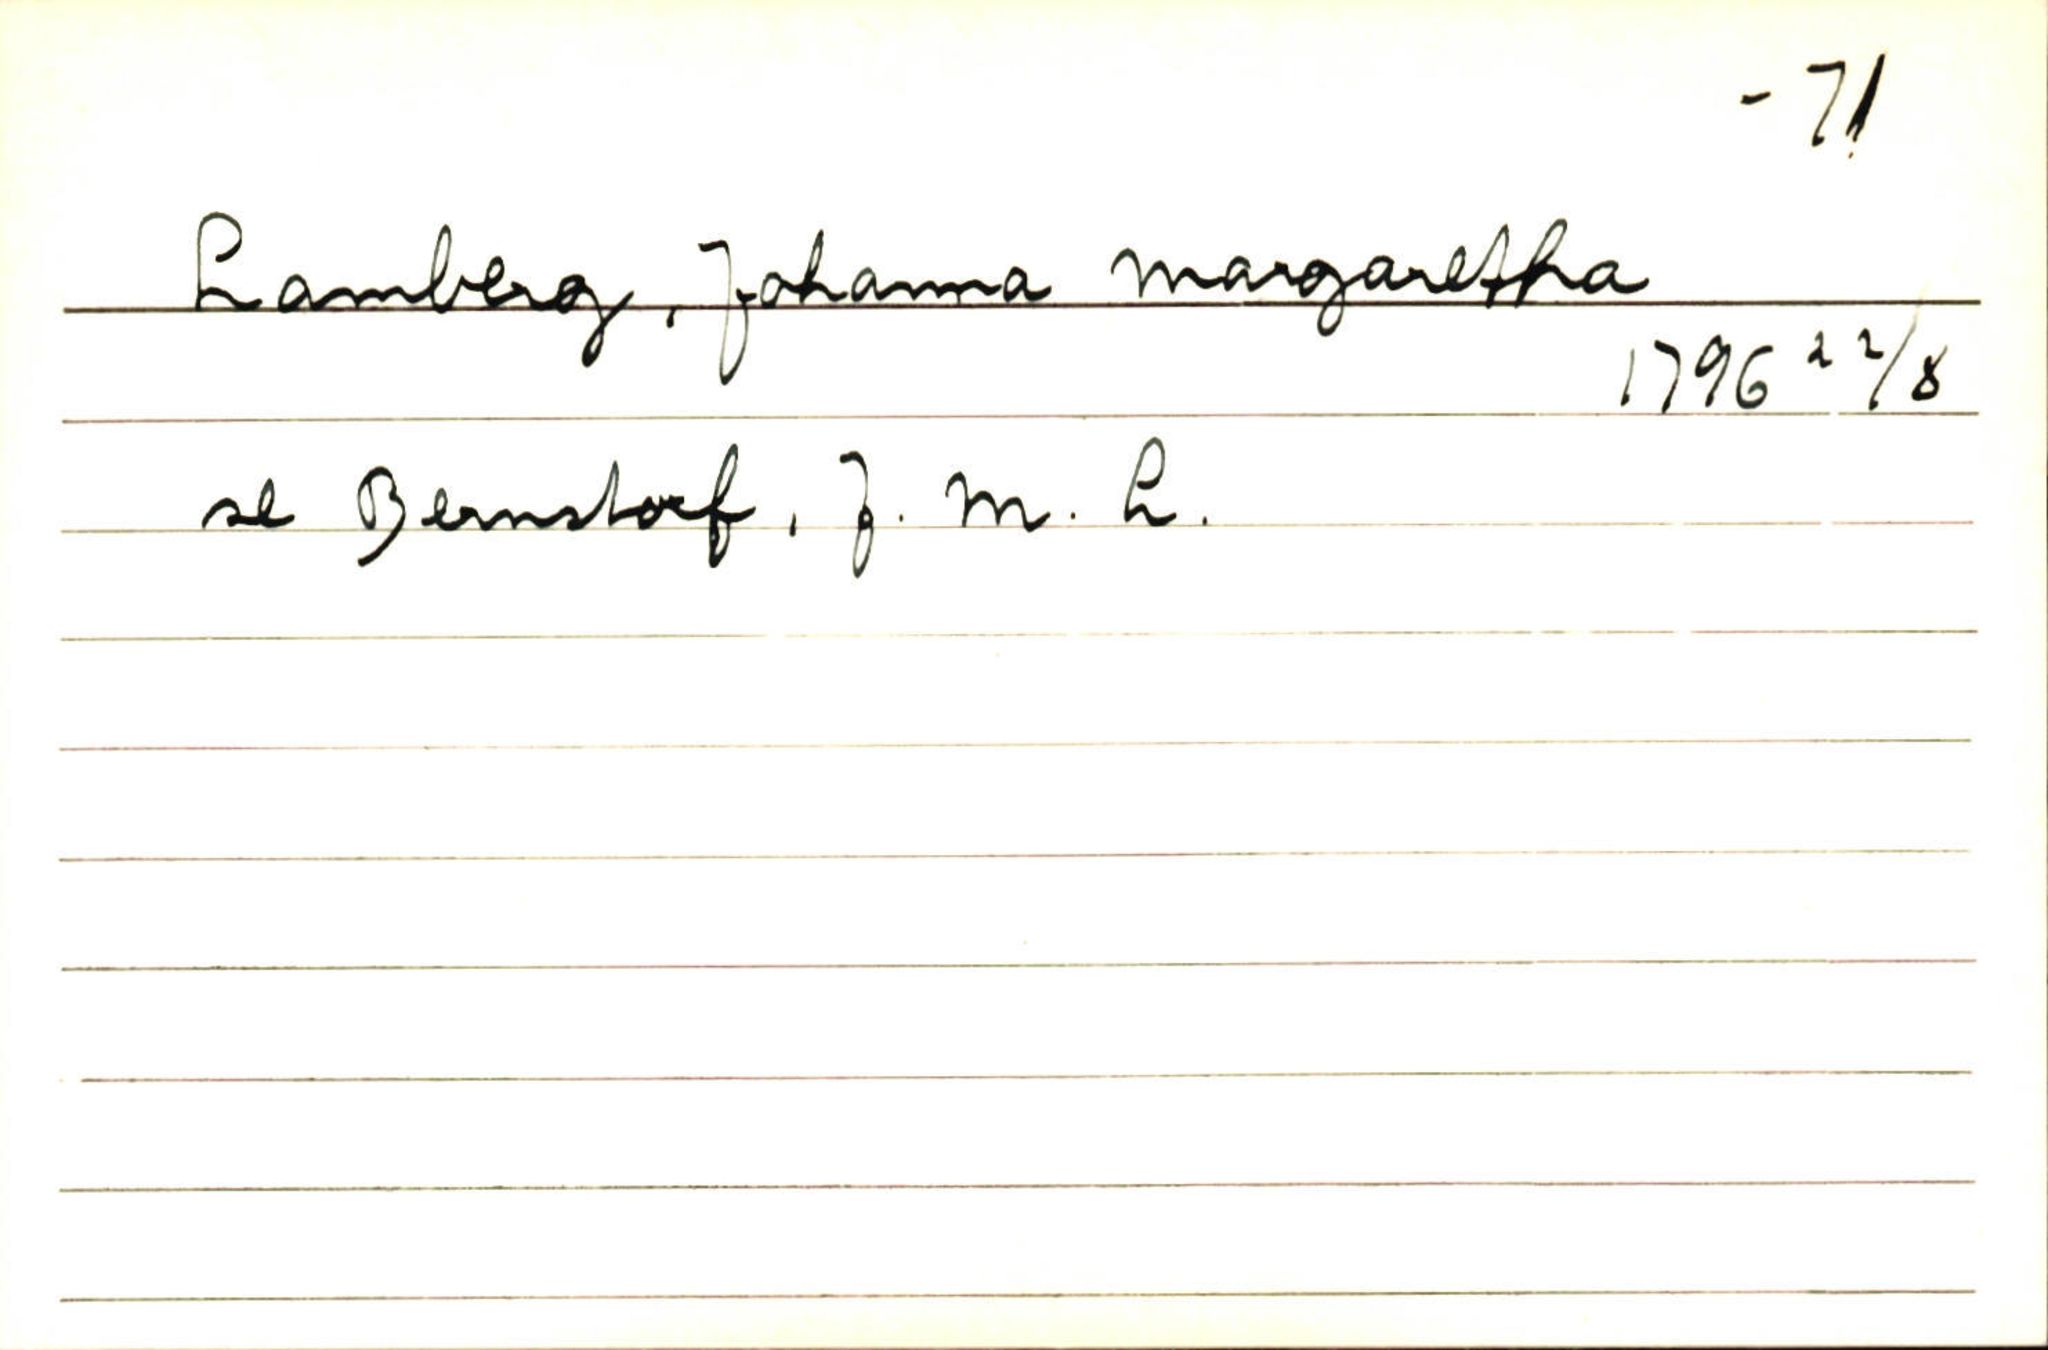 - 71
Lamberg, Johanna Margaretha
1796 22/8
se Bernstorf, J. M. L.